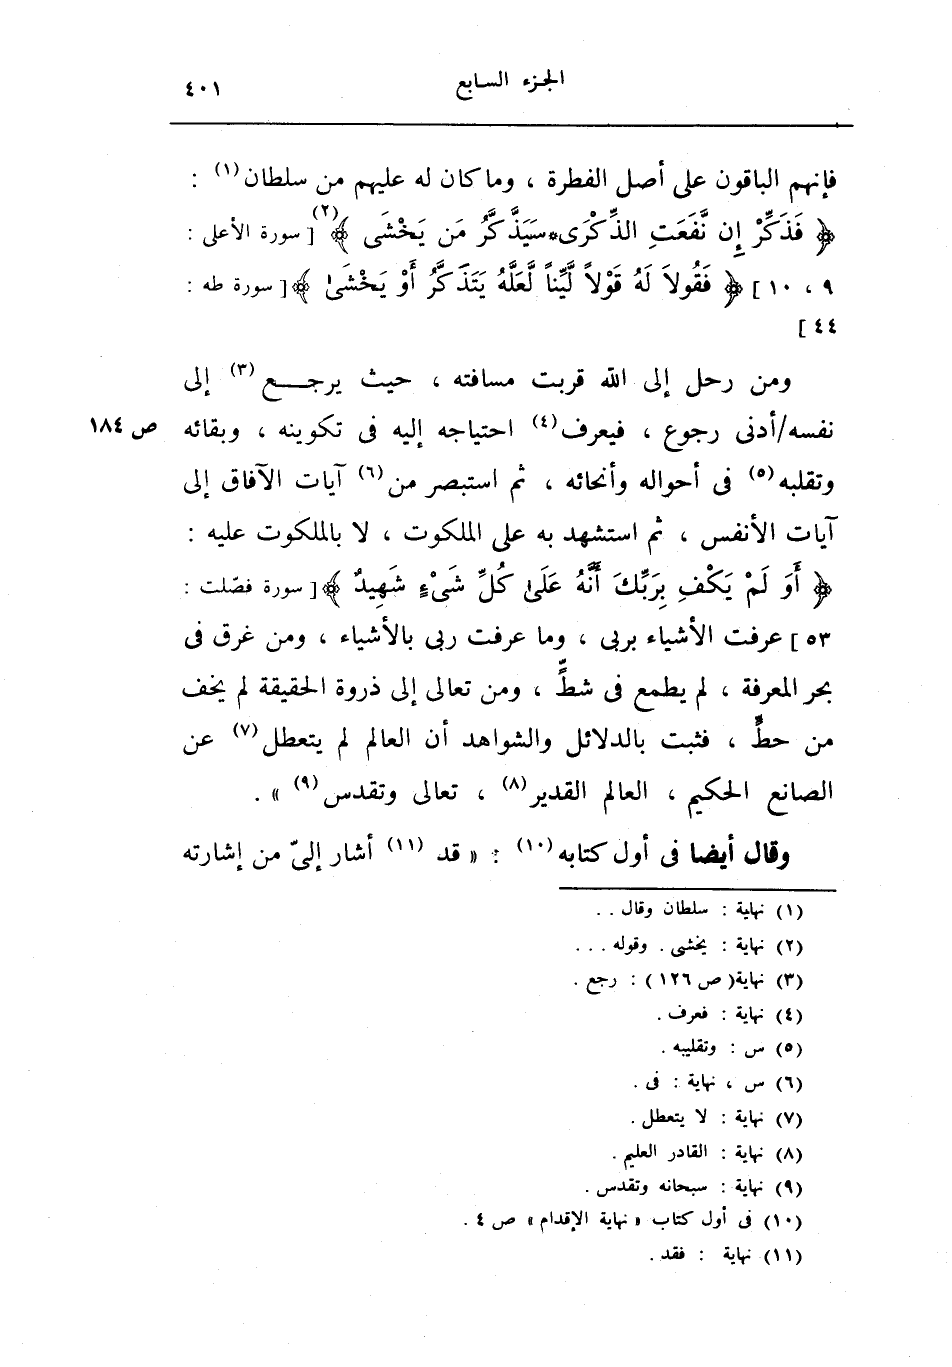 الجزء السابع ٤٠١
فإنهم الباقون على أصل الفطرة ، وما كان له عليهم من سلطان(١) :
﴿ فَذَكِّرْ إِن نَّفَعَتِ الذِّكْرَى*سَيَذَّكَّرُ مَن يَخْشَى ﴾(٢) [ سورة الأعلى :
٩ ، ١٠ ] ﴿ فَقُولاَ لَهُ قَوْلاً لَّيِّناً لَّعَلَّهُ يَتَذَكَّرُ أَوْ يَخْشَىٰ ﴾ [ سورة طه :
٤٤ ]
ومن رحل إلى الله قربت مسافته ، حيث يرجـــع(٣) إلى
نفسه/أدنى رجوع ، فيعرف(٤) احتياجه إليه فى تكوينه ، وبقائه ص ١٨٤
وتقلبه(٥) فى أحواله وأنحائه ، ثم استبصر من(٦) آيات الآفاق إلى
آيات الأنفس ، ثم استشهد به على الملكوت ، لا بالملكوت عليه :
﴿ أَوَ لَمْ يَكْفِ بِرَبِّكَ أَنَّهُ عَلَىٰ كُلِّ شَىْءٍ شَهِيدٌ ﴾ [ سورة فصّلت :
٥٣ ] عرفت الأشياء بربى ، وما عرفت ربى بالأشياء ، ومن غرق فى
بحر المعرفة ، لم يطمع فى شطٍّ ، ومن تعالى إلى ذروة الحقيقة لم يخف
من حطٍّ ، فثبت بالدلائل والشواهد أن العالم لم يتعطل(٧) عن
الصانع الحكيم ، العالم القدير(٨) ، تعالى وتقدس(٩) » .
وقال أيضا فى أول كتابه(١٠) : « قد (١١) أشار إلىّ من إشارته
(١) نهاية : سلطان وقال . .
(٢) نهاية : يخشى . وقوله . . .
(٣) نهاية( ص ١٢٦ ) : رجع .
(٤) نهاية : فعرف .
(٥) س : وتقليبه .
(٦) س ، نهاية : فى .
(٧) نهاية : لا يتعطل .
(٨) نهاية : القادر العليم .
(٩) نهاية : سبحانه وتقدس .
(١٠) فى أول كتاب « نهاية الإقدام » ص ٤ .
(١١) نهاية : فقد .